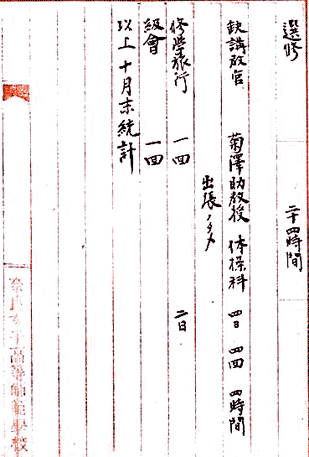 選修 二十四時間
欽講教官 菊澤助教授 体操科 四日 四回 四時間
出張ノタメ
修學旅行 一回 二日
級會 一回
以上十月末統計
奈良女子高等師範學校